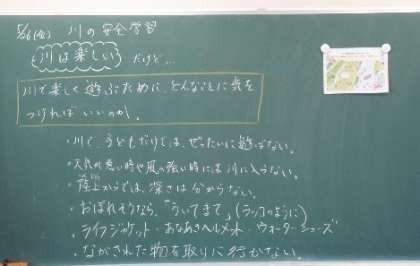 5/26(金) 川の安全学習
川は楽しい だけど…
川で楽しく遊ぶために、どんなことに気を
つければいいのか。
・川で、子どもだけでは、ぜったいに遊ばない。
・天気の悪い時や風の強い時には川に入らない。
・陸上からでは、深さは分からない。
・おぼれそうなら、"ういてまて"(ラッコのように)
・ライフジャケット・あなあきヘルメット・ウォーターシューズ
・ながされた物を取りに行かない。